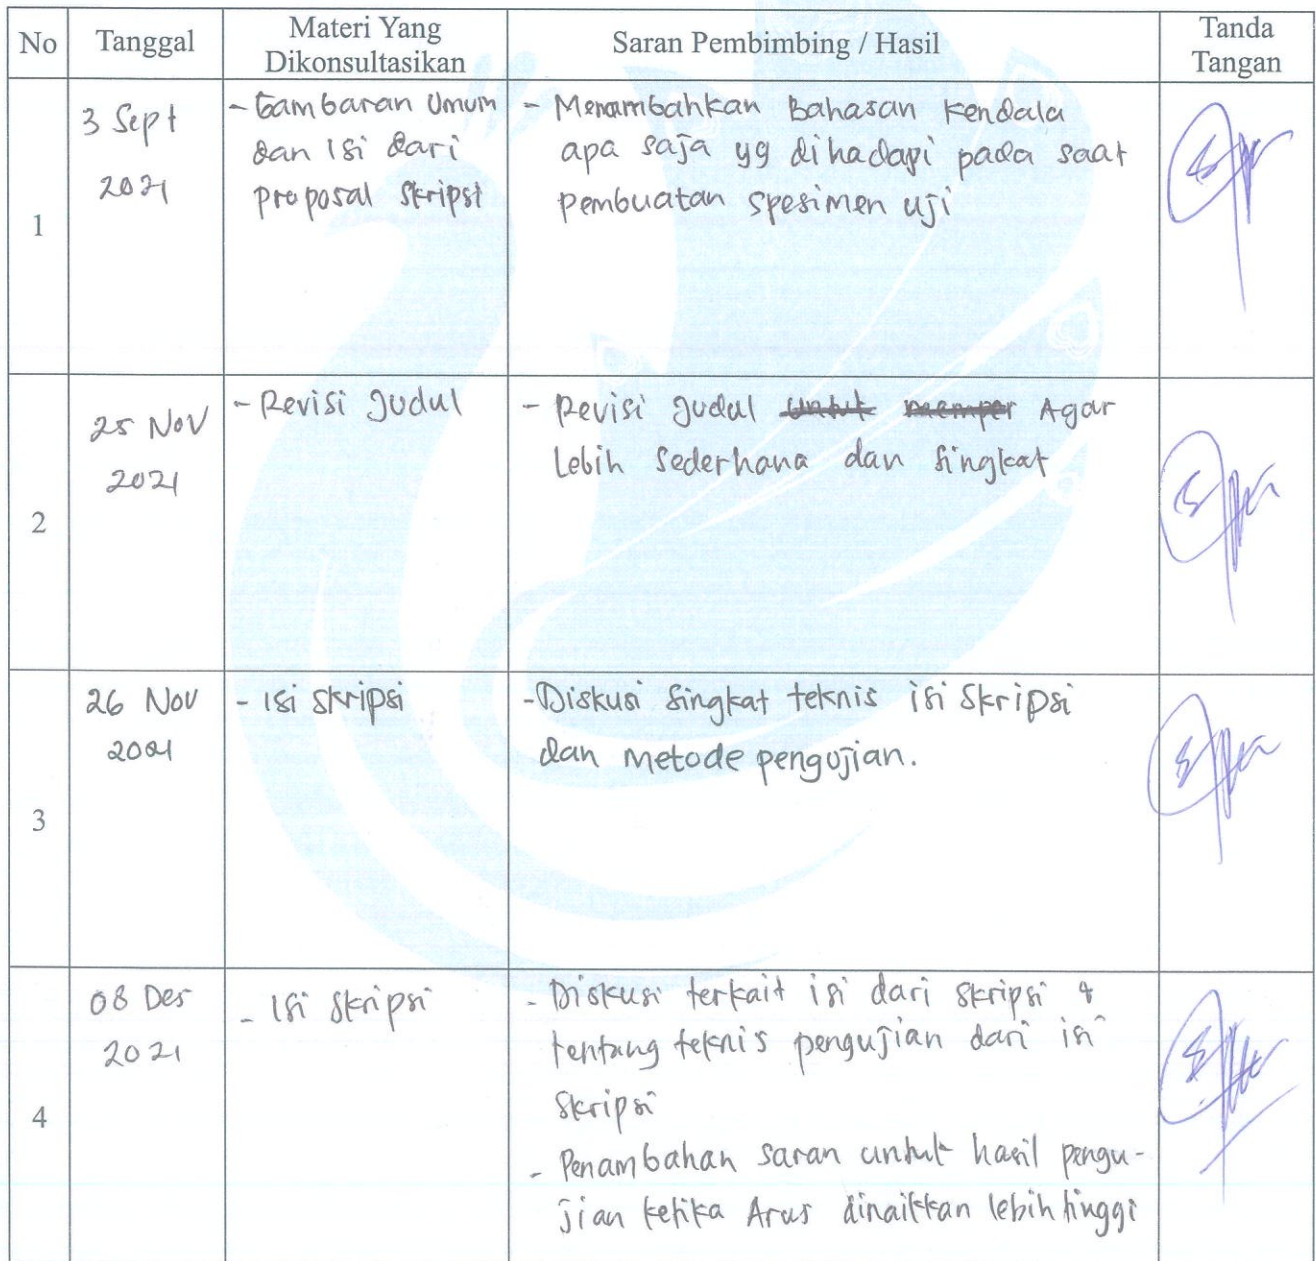 No
Tanggal
Materi Yang
Dikonsultasikan
Saran Pembimbing / Hasil
Tanda
Tangan
1
3 Sept
2021
- Gambaran Umum
dan Isi dari
proposal Skripsi
- Menambahkan Bahasan kendala
apa saja yg dihadapi pada saat
pembuatan spesimen uji
2
25 Nov
2021
- Revisi Judul
- Revisi Judul untuk memper Agar
Lebih Sederhana dan Singkat
3
26 Nov
2021
- Isi Skripsi
- Diskusi Singkat teknis isi Skripsi
dan Metode pengujian.
4
08 Des
2021
- Isi Skripsi
- Diskusi terkait isi dari skripsi &
tentang teknis pengujian dari isi
Skripsi
- Penambahan saran untuk hasil pengu-
jian ketika Arus dinaikkan lebih tinggi